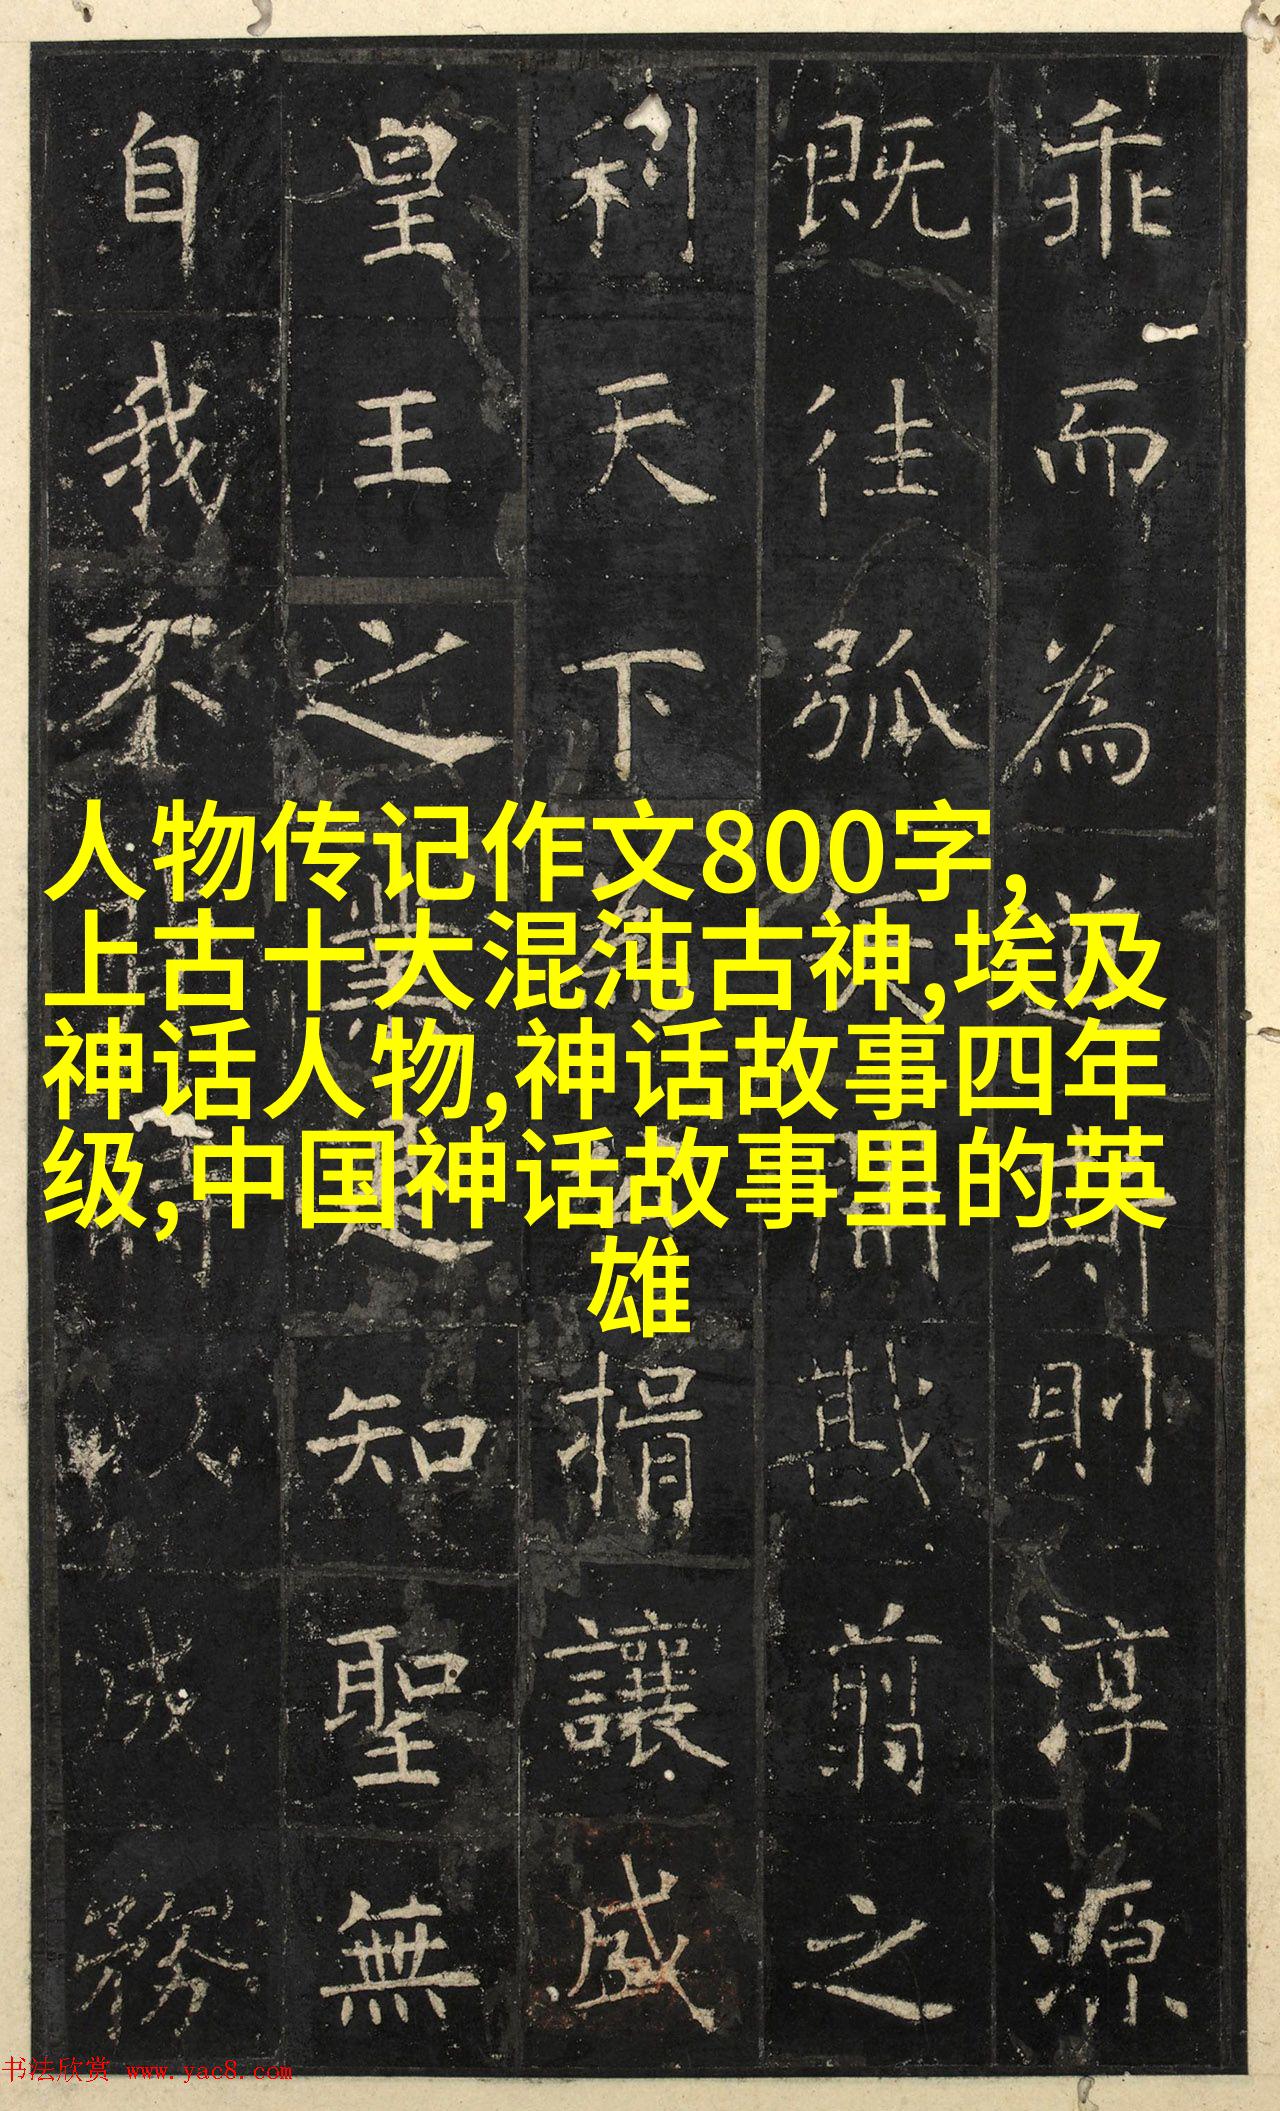 乖而為則淳源
既往弧戡翦之
利天下捐讓咸
皇王之知聖無
自我不務
人物传记作文800字,
上古十大混沌古神,埃及
神话人物,神话故事四年
级,中国神话故事里的英
雄
书法欣赏 www.yac8.com